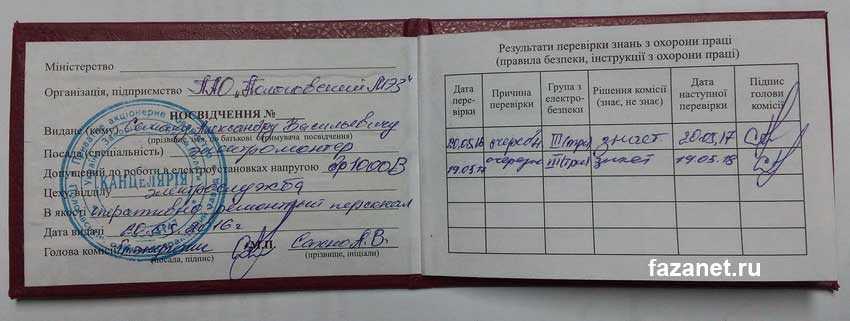 Міністерство
Організація, підприємство ПАО „Пологовский МЭЗ"
ПОСВІДЧЕННЯ №
Видане (кому) Александру Васильевичу
(прізвище, ім'я, по батькові отримувача посвідчення)
Посада (спеціальність) электромонтер
Допущений до роботи в електроустановках напругою до 1000В
Цеху, відділу электрослужба
В якості оперативно ремонтний персонал
Дата видачі 20.05.2016г
Голова комісії М.П.
(посада, підпис) (прізвище, ініціали)
КАНЦЕЛЯРІЯ
Результати перевірки знань з охорони праці
(правила безпеки, інструкції з охорони праці)
Дата перевірки
Причина перевірки
Група з електробезпеки
Рішення комісії (знає, не знає)
Дата наступної перевірки
Підпис голови комісії
20.05.16 очередн III (три) знает 20.05.17
19.05.17 очередн III (три) знает 19.05.18
fazanet.ru